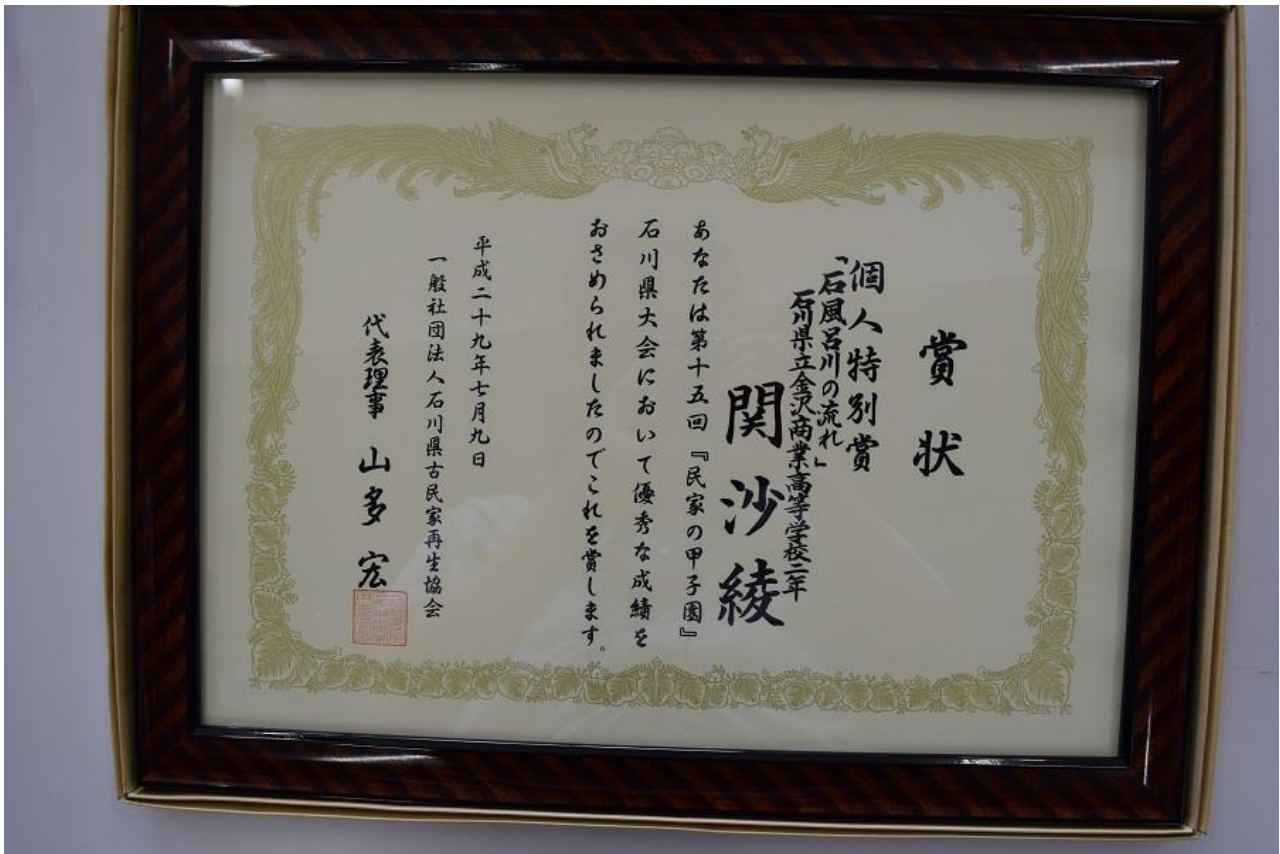 賞状
個人特別賞
「石風呂川の流れ」
石川県立金沢商業高等学校二年
関沙綾
あなたは第十五回『民家の甲子園』
石川県大会において優秀な成績を
おさめられましたのでこれを賞します。
平成二十九年七月九日
一般社団法人石川県古民家再生協会
代表理事 山多宏